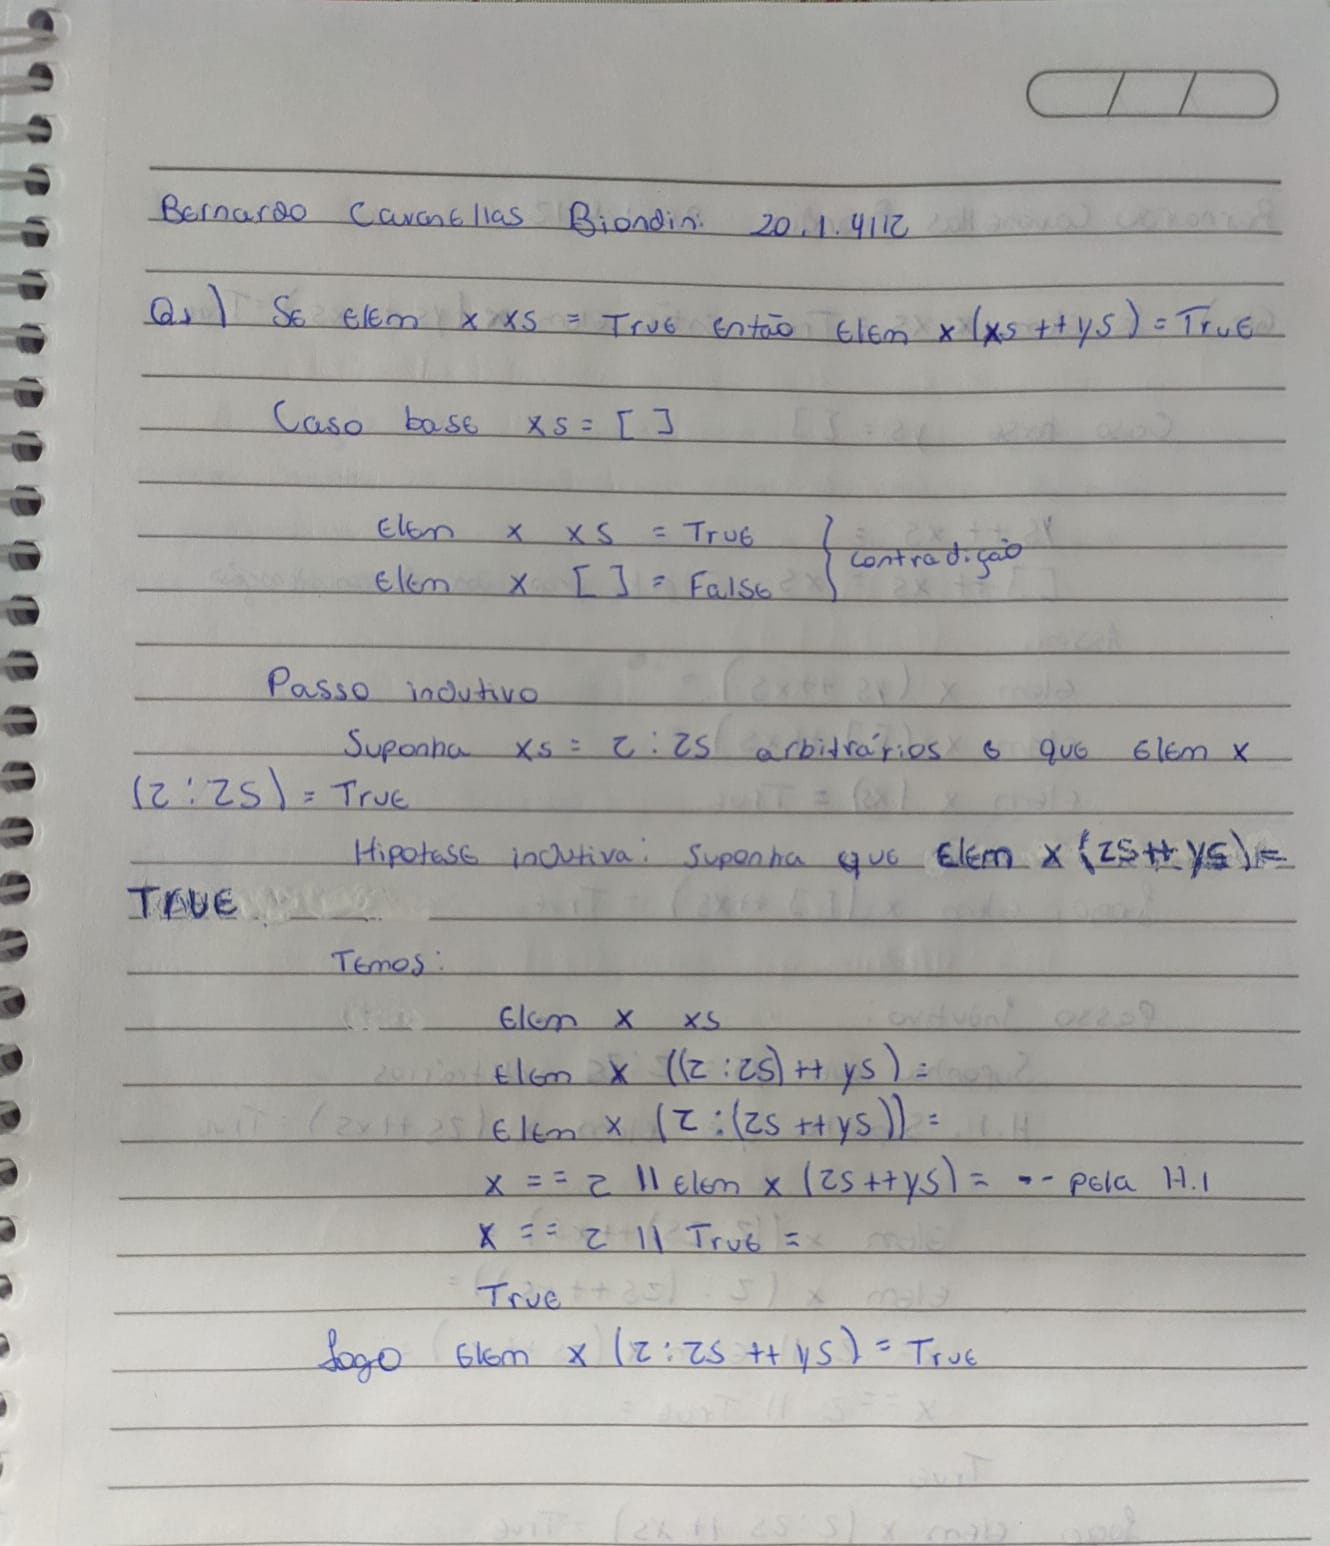 Bernardo Cavanellas Biondini 20.1.4112
Q1) Se elem x xs = True então elem x (xs ++ ys) = True
Caso base xs = [ ]
elem x xs = True
elem x [ ] = False } contradição
Passo indutivo
Suponha xs = z : zs arbitrários e que elem x
(z : zs) = True
Hipotese indutiva: Suponha que elem x (zs ++ ys) =
TRUE
Temos:
elem x xs
elem x ((z : zs) ++ ys) =
elem x (z : (zs ++ ys)) =
x == z || elem x (zs ++ ys) = -- pela H.I
x == z || True =
True
Logo elem x (z : zs ++ ys) = True